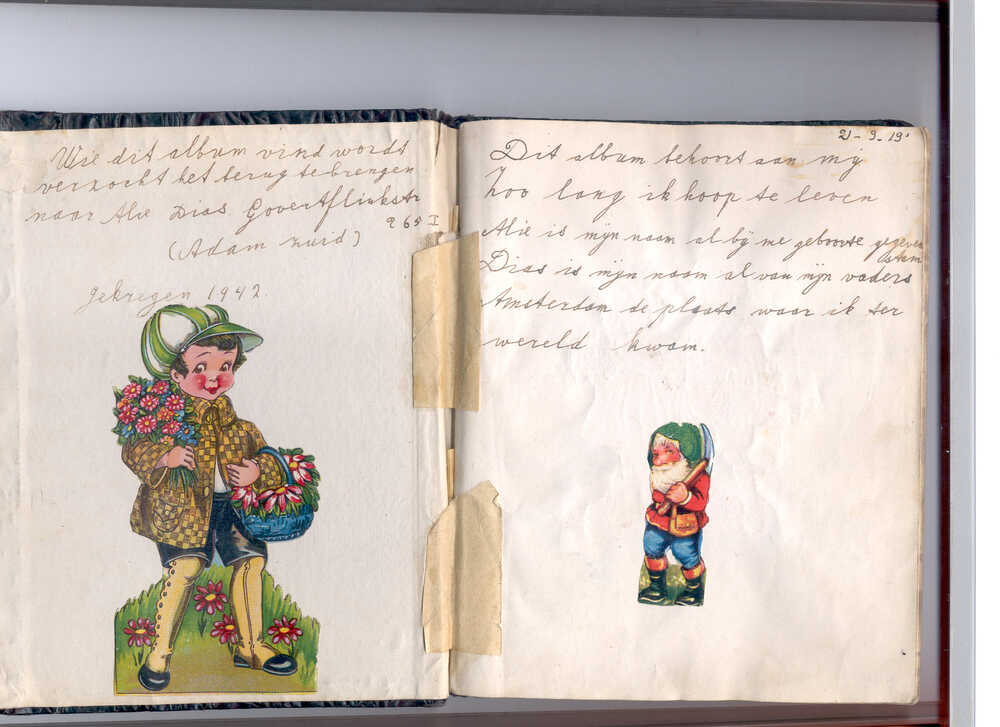 Wie dit album vind wordt
verzocht het terug te brengen
naar Alie Dias Govert Flinkstr
265 I
(Adam Zuid)
Gekregen 1942.
21-9-19
Dit album behoort aan mij
Zoo lang ik hoop te leven
Alie is mijn naam al bij me geboorte gegeven
Dias is mijn naam al van mijn vaders stam
Amsterdam de plaats waar ik ter
wereld kwam.